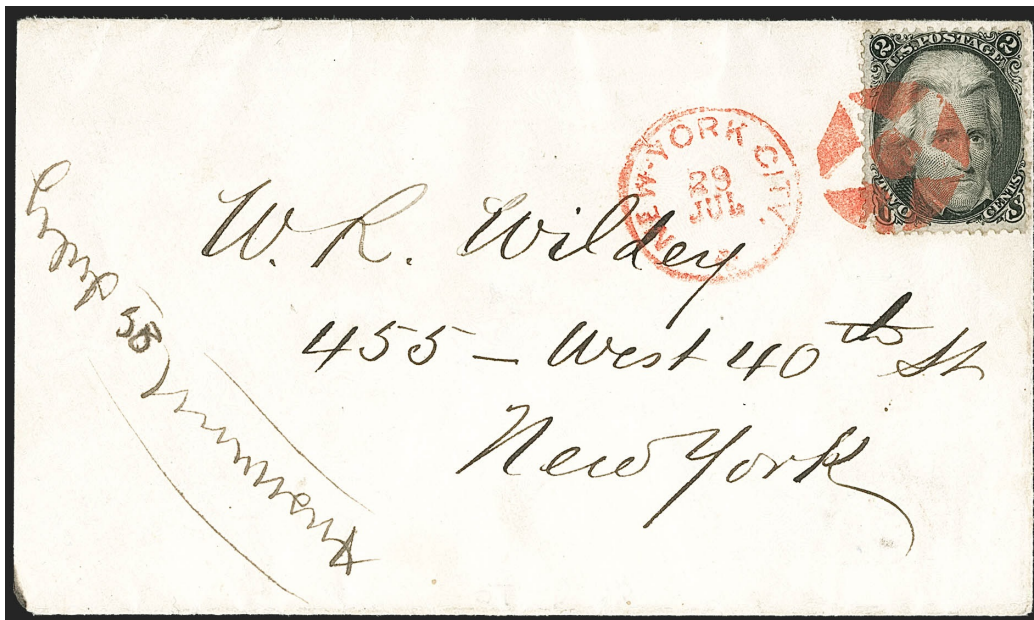 U.S. POSTAGE
2 2
CENTS.
NEW-YORK CITY.
29
JUL
W. R. Wildey
455 – West 40th St
New York
Answered
July